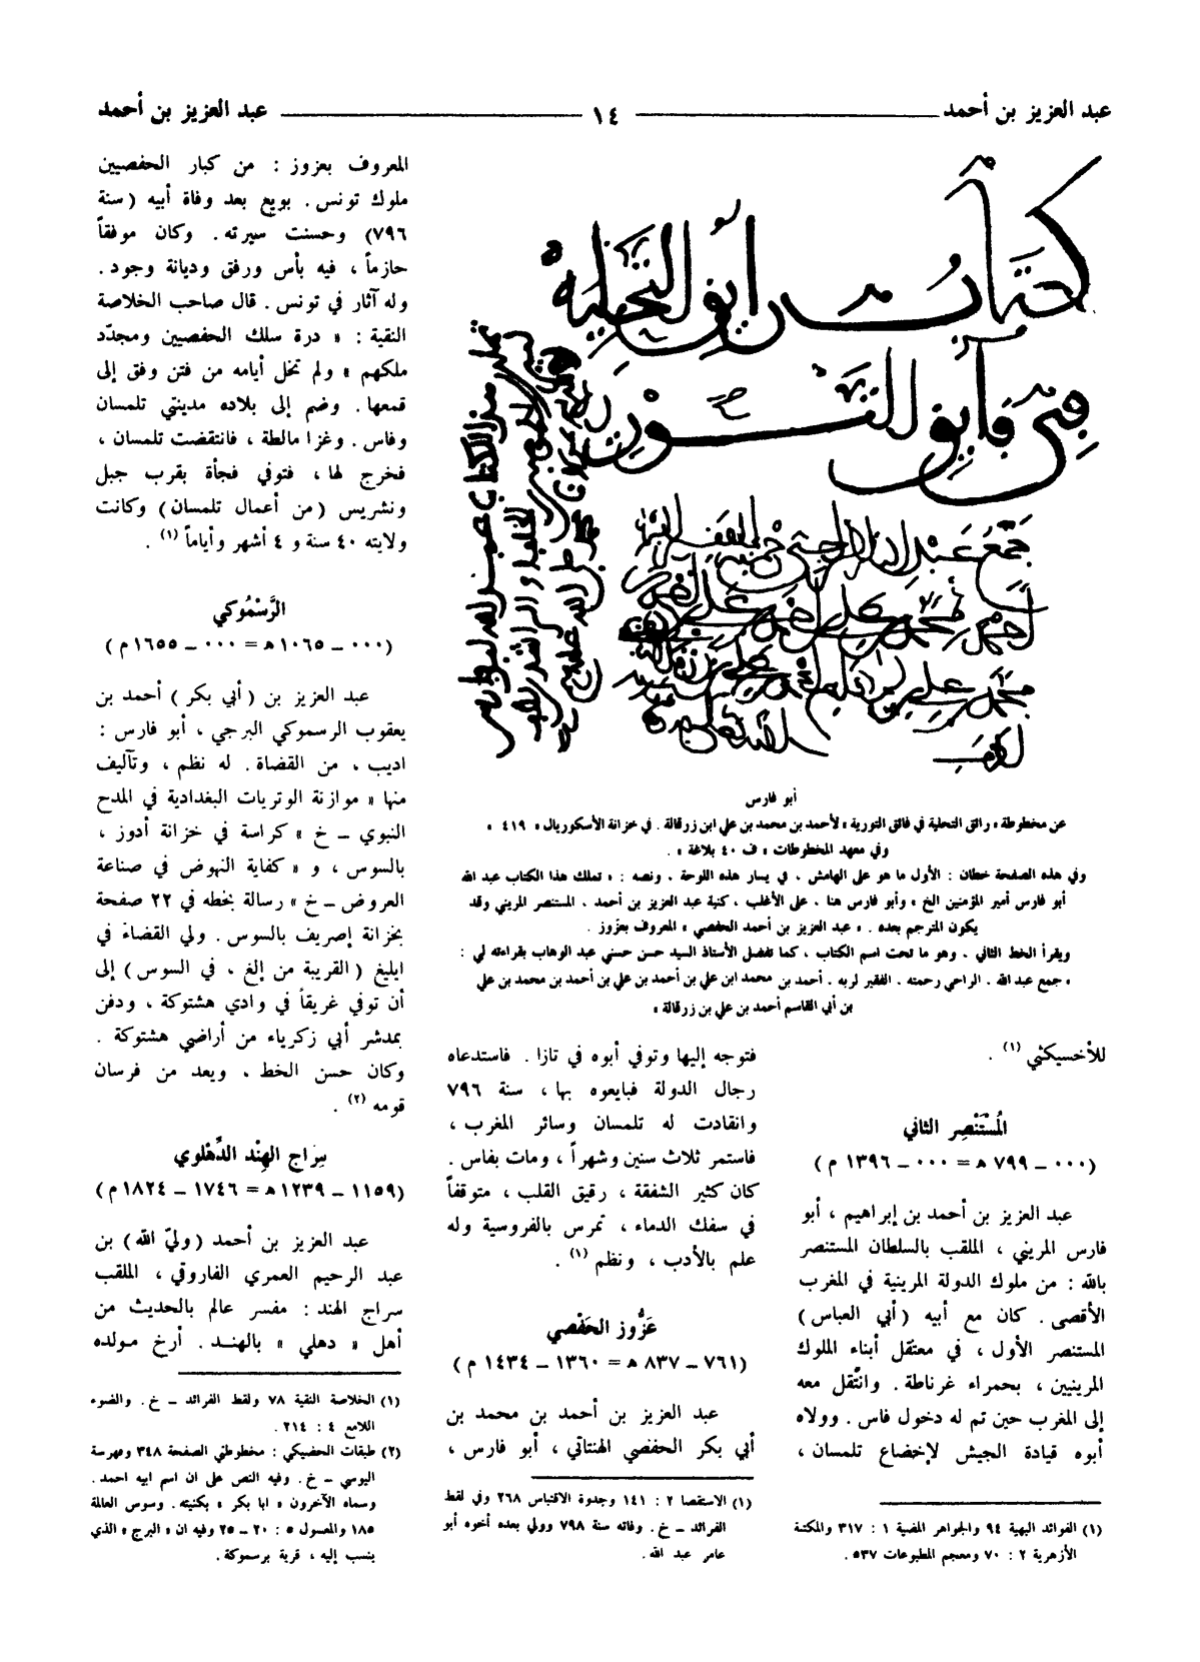 عبد العزيز بن أحمد
١٤
عبد العزيز بن أحمد
كتاب رايق التحلية
في فايق التورية
أبو فارس
عن مخطوطة « رائق التحلية في فائق التورية » لأحمد بن محمد بن علي ابن زرقالة . في خزانة الأسكوريال « ٤١٩ »
وفي معهد المخطوطات « ف ٤٠ بلاغة » .
وفي هذه الصفحة خطان : الأول ما هو على الهامش ، في يسار هذه اللوحة ، ونصه : « تملك هذا الكتاب عبد الله
أبو فارس أمير المؤمنين الخ » وأبو فارس هنا ، على الأغلب ، كنية عبد العزيز بن أحمد ، المستنصر المريني وقد
يكون المترجم بعده . « عبد العزيز بن أحمد الحفصي » المعروف بعزّوز .
ويقرأ الخط الثاني ، وهو ما تحت اسم الكتاب ، كما تفضل الأستاذ السيد حسن حسني عبد الوهاب بقراءته لي :
« جمع عبد الله . الراجي رحمته . الفقير لربه . أحمد بن محمد ابن علي بن أحمد بن علي بن أحمد بن محمد بن علي
بن أبي القاسم أحمد بن علي بن زرقالة »
للأخسيكثي (١) .
المُسْتَنْصِر الثاني
(٠٠٠ ـ ٧٩٩ ه = ٠٠٠ ـ ١٣٩٦ م)
عبد العزيز بن أحمد بن إبراهيم ، أبو
فارس المريني ، الملقب بالسلطان المستنصر
بالله : من ملوك الدولة المرينية في المغرب
الأقصى . كان مع أبيه (أبي العباس)
المستنصر الأول ، في معتقل أبناء الملوك
المرينيين ، بحمراء غرناطة . وانتقل معه
إلى المغرب حين تم له دخول فاس . وولاه
أبوه قيادة الجيش لإخضاع تلمسان ،
(١) الفوائد البهية ٩٤ والجواهر المضية ١ : ٣١٧ والمكتبة
الأزهرية ٢ : ٧٠ ومعجم المطبوعات ٥٣٧ .
فتوجه إليها وتوفي أبوه في تازا . فاستدعاه
رجال الدولة فبايعوه بها ، سنة ٧٩٦
وانقادت له تلمسان وسائر المغرب ،
فاستمر ثلاث سنين وشهراً ، ومات بفاس .
كان كثير الشفقة ، رقيق القلب ، متوقفاً
في سفك الدماء ، تمرس بالفروسية وله
علم بالأدب ، ونظم (١) .
عَزُّوز الحَفْصي
(٧٦١ ـ ٨٣٧ ه = ١٣٦٠ ـ ١٤٣٤ م)
عبد العزيز بن أحمد بن محمد بن
أبي بكر الحفصي الهنتاتي ، أبو فارس ،
(١) الاستقصا ٢ : ١٤١ وجدوة الاقتباس ٢٦٨ وفي لقط
الفرائد ـ خ . وفاته سنة ٧٩٨ وولي بعده أخوه أبو
عامر عبد الله .
المعروف بعزوز : من كبار الحفصيين
ملوك تونس . بويع بعد وفاة أبيه (سنة
٧٩٦) وحسنت سيرته . وكان موفقاً
حازماً ، فيه بأس ورفق وديانة وجود .
وله آثار في تونس . قال صاحب الخلاصة
النقية : « درة سلك الحفصيين ومجدّد
ملكهم » ولم تخل أيامه من فتن وفق إلى
قمعها . وضم إلى بلاده مدينتي تلمسان
وفاس . وغزا مالطة ، فانتقضت تلمسان ،
فخرج لها ، فتوفي فجأة بقرب جبل
ونشريس (من أعمال تلمسان) وكانت
ولايته ٤٠ سنة و ٤ أشهر وأياماً (١) .
الرَّسْمُوكي
(٠٠٠ ـ ١٠٦٥ ه = ٠٠٠ ـ ١٦٥٥ م)
عبد العزيز بن ( أبي بكر ) أحمد بن
يعقوب الرسموكي البرجي ، أبو فارس :
اديب ، من القضاة . له نظم ، وتآليف
منها « موازنة الوتريات البغدادية في المدح
النبوي ـ خ » كراسة في خزانة أدوز ،
بالسوس ، و « كفاية النهوض في صناعة
العروض ـ خ » رسالة بخطه في ٢٢ صفحة
بخزانة إصريف بالسوس . ولي القضاء في
ايليغ (القريبة من إلغ ، في السوس) إلى
أن توفي غريقاً في وادي هشتوكة ، ودفن
بمدشر أبي زكرياء من أراضي هشتوكة .
وكان حسن الخط ، ويعد من فرسان
قومه (٢) .
سِرَاج الهِنْد الدِّهْلوي
(١١٥٩ ـ ١٢٣٩ ه = ١٧٤٦ ـ ١٨٢٤ م)
عبد العزيز بن أحمد (وليّ الله) بن
عبد الرحيم العمري الفاروقي ، الملقب
سراج الهند : مفسر عالم بالحديث من
أهل « دهلي » بالهنـد . أرخ مـولده
(١) الخلاصة النقية ٧٨ ولقط الفرائد ـ خ . والضوء
اللامع ٤ : ٢١٤ .
(٢) طبقات الحضيكي : مخطوطتي الصفحة ٣٤٨ وفهرسة
اليوسي ـ خ . وفيه النص على ان اسم ابيه احمد .
وسماه الآخرون « ابا بكر » بكنيته . وسوس العالمة
١٨٥ والمعسول ٥ : ٢٠ ـ ٢٥ وفيه ان « البرج » الذي
ينسب إليه ، قرية برسموكة .